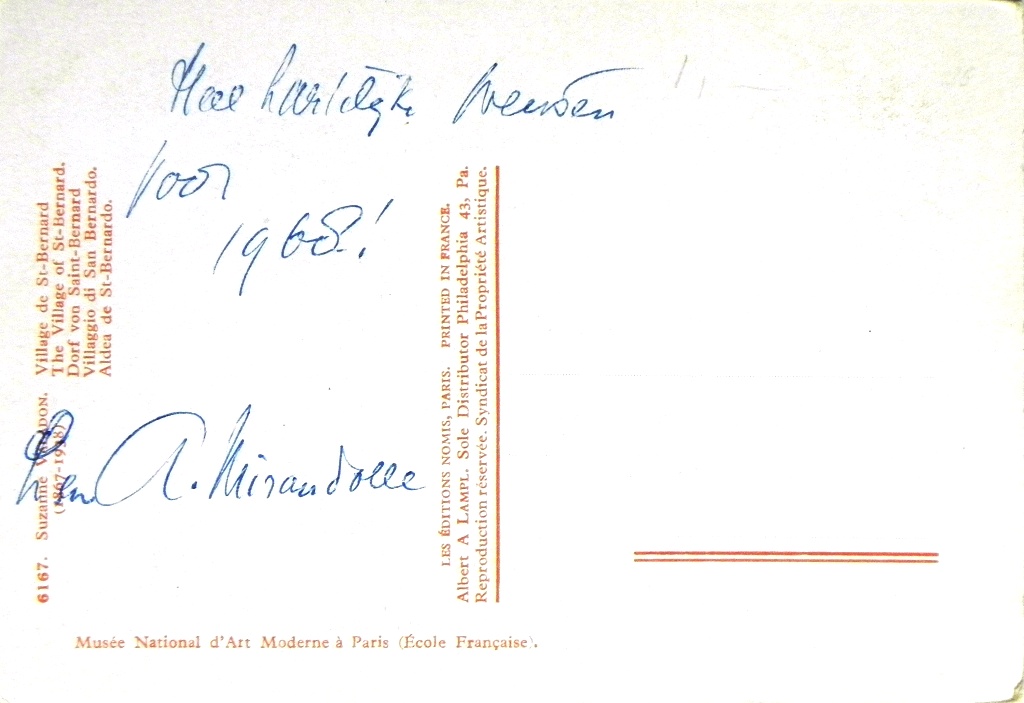 Heel hartelijke wensen
voor
1968!
Len A. Mirandolle
6167. Suzanne VALADON.
(1867-1938)
Village de St-Bernard
The Village of St-Bernard.
Dorf von Saint-Bernard
Villaggio di San Bernardo.
Aldea de St-Bernardo.
LES ÉDITIONS NOMIS, PARIS. PRINTED IN FRANCE.
Albert A LAMPL. Sole Distributor Philadelphia 43, Pa.
Reproduction réservée. Syndicat de la Propriété Artistique.
Musée National d'Art Moderne à Paris (École Française).